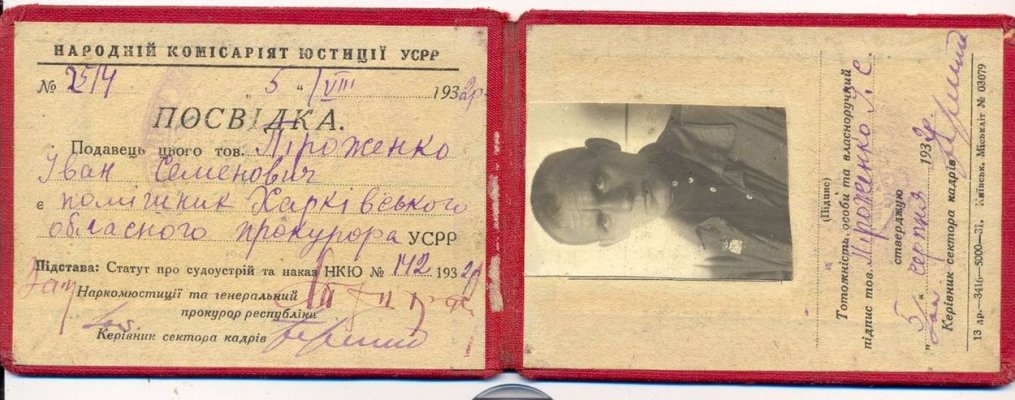 НАРОДНІЙ КОМІСАРІЯТ ЮСТИЦІЇ УСРР
№ 2514 „ 5 “ VIII 1932 р
ПОСВІДКА.
Подавець цього тов. Піроженко
Іван Семенович
є помішник Харківського
обласного прокурора УСРР
Підстава: Статут про судоустрій та наказ НКЮ № 142 1932 р
Наркомюстиції та генеральний
прокурор республіки
Керівник сектора кадрів
(Підпис)
Тотожність особи та власноручний
підпис тов. Піроженко І. С.
стверджую
„ 5 “ серпня 1932 р.
Керівник сектора кадрів
13 др.—3416—5000—31. Київськ. Міськліт № 03079